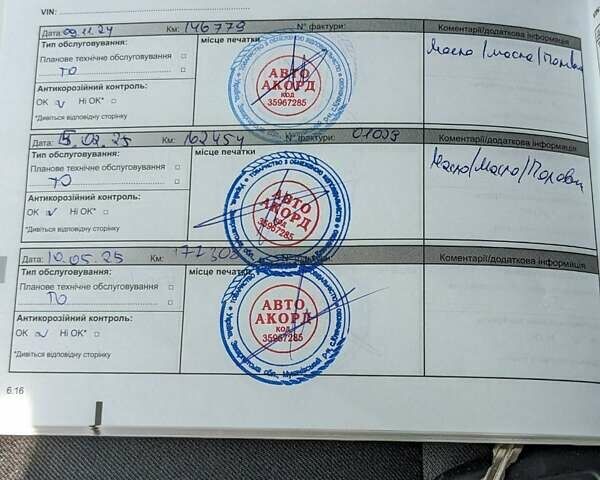 VIN:
Дата: 09.11.24 Км: 146779 N° фактури: Коментарі/додаткова інформація
Тип обслуговування: місце печатки Масло/масло/
Планове технічне обслуговування
ТО
Антикорозійний контроль:
OK Ні OK*
*Дивіться відповідну сторінку
АВТО
АКОРД
КОД
35967285
Дата: 15.02.25 Км: 162454 N° фактури: Коментарі/додаткова інформація
Тип обслуговування: місце печатки Масло/Масло/
Планове технічне обслуговування
ТО
Антикорозійний контроль:
OK Ні OK*
*Дивіться відповідну сторінку
АВТО
АКОРД
КОД
35967285
Дата: 10.05.25 Км: Коментарі/додаткова інформація
Тип обслуговування: місце печатки
Планове технічне обслуговування
ТО
Антикорозійний контроль:
OK Ні OK*
*Дивіться відповідну сторінку
АВТО
АКОРД
КОД
35967285
6.16